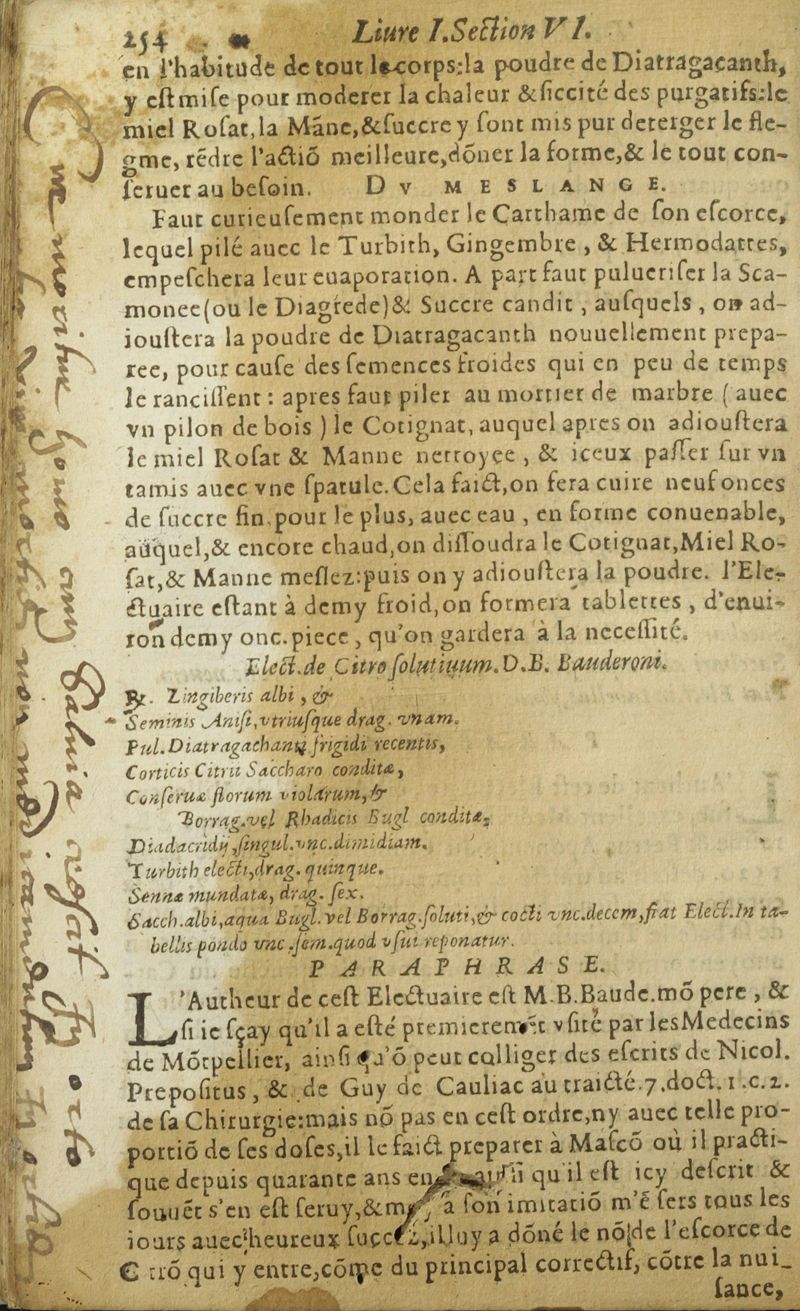 254 Liure I. Section VI.
en l'habitude de tout le corps: la poudre de Diatragacanth,
y eſt miſe pour moderer la chaleur & ſiccité des purgatifs: le
miel Roſat, la Mãne, & ſuccre y ſont mis pur deterger le fle-
gme, rẽdre l'actiõ meilleure, dõner la forme, & le tout con-
ſeruer au beſoin. DV MESLANGE.
Faut curieuſement monder le Carthame de ſon eſcorce,
lequel pilé auec le Turbith, Gingembre, & Hermodattes,
empeſchera leur euaporation. A part faut puluerifer la Sca-
monee (ou le Diagrede) & Succre candit, auſquels, on ad-
iouſtera la poudre de Diatragacanth nouuellement prepa-
ree, pour cauſe des ſemences froides qui en peu de temps
ſe ranciſſent: apres faut piler au mortier de marbre (auec
vn pilon de bois) le Cotignat, auquel apres on adiouſtera
le miel Roſat & Manne nettoyee, & iceux paſſer ſur vn
tamis auec vne ſpatule. Cela faict, on fera cuire neuf onces
de ſuccre fin, pour le plus, auec eau, en forme conuenable,
auquel, & encore chaud, on diſſoudra le Cotignat, Miel Ro-
ſat, & Manne meſlez: puis on y adiouſtera la poudre. l'Ele-
ctuaire eſtant à demy froid, on formera tablettes, d'enui-
ron demy onc. piece, qu'on gardera à la neceſſité.
Elect. de Citro ſolutiuum. D. B. Bauderoni.
℞. Zingiberis albi, &
Seminis Aniſi, vtriuſque drag. vnam.
Pul. Diatragachanti frigidi recentis,
Corticis Citrii Saccharo conditæ,
Conſeruæ florum violarum, &
Borrag. vel Rhadicis Bugl conditæ,
Diadacridij, ſingul. vnc. dimidiam.
Turbith electi, drag. quinque.
Sennæ mundatæ, drag. ſex.
Sacch. albi, aqua Bugl. vel Borrag. ſoluti, & cocti vnc. decem, fiat Elect. In ta-
bellis pondo vnc. ſem. quod vſui reponatur.
PARAPHRASE.
L'Autheur de ceſt Electuaire eſt M. B. Baude. mõ pere, &
ſi ie ſçay qu'il a eſté premieremẽt vſité par les Medecins
de Mõtpellier, ainſi qu'õ peut colliger des eſcrits de Nicol.
Prepoſitus, & de Guy de Cauliac au traicté. 7. doct. 1. c. 2.
de ſa Chirurgie: mais nõ pas en ceſt ordre, ny auec telle pro-
portiõ de ſes doſes, il le faict preparer à Maſcõ où il practi-
que depuis quarante ans qu'il eſt icy deſcrit &
ſouuẽt s'en eſt ſeruy, & à ſon imitatiõ m'ẽ ſers tous les
iours auec heureux ſuccez, il luy a dõné le nõ de l'eſcorce de
Citrõ qui y entre, cõme du principal correctif, cõtre la nui-
ſance,